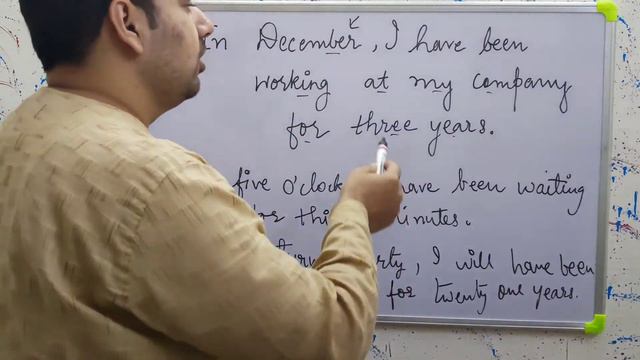 in December, I have been
working at my company
for three years.
five o'clock have been waiting
minutes.
, I will have been
for twenty one years.